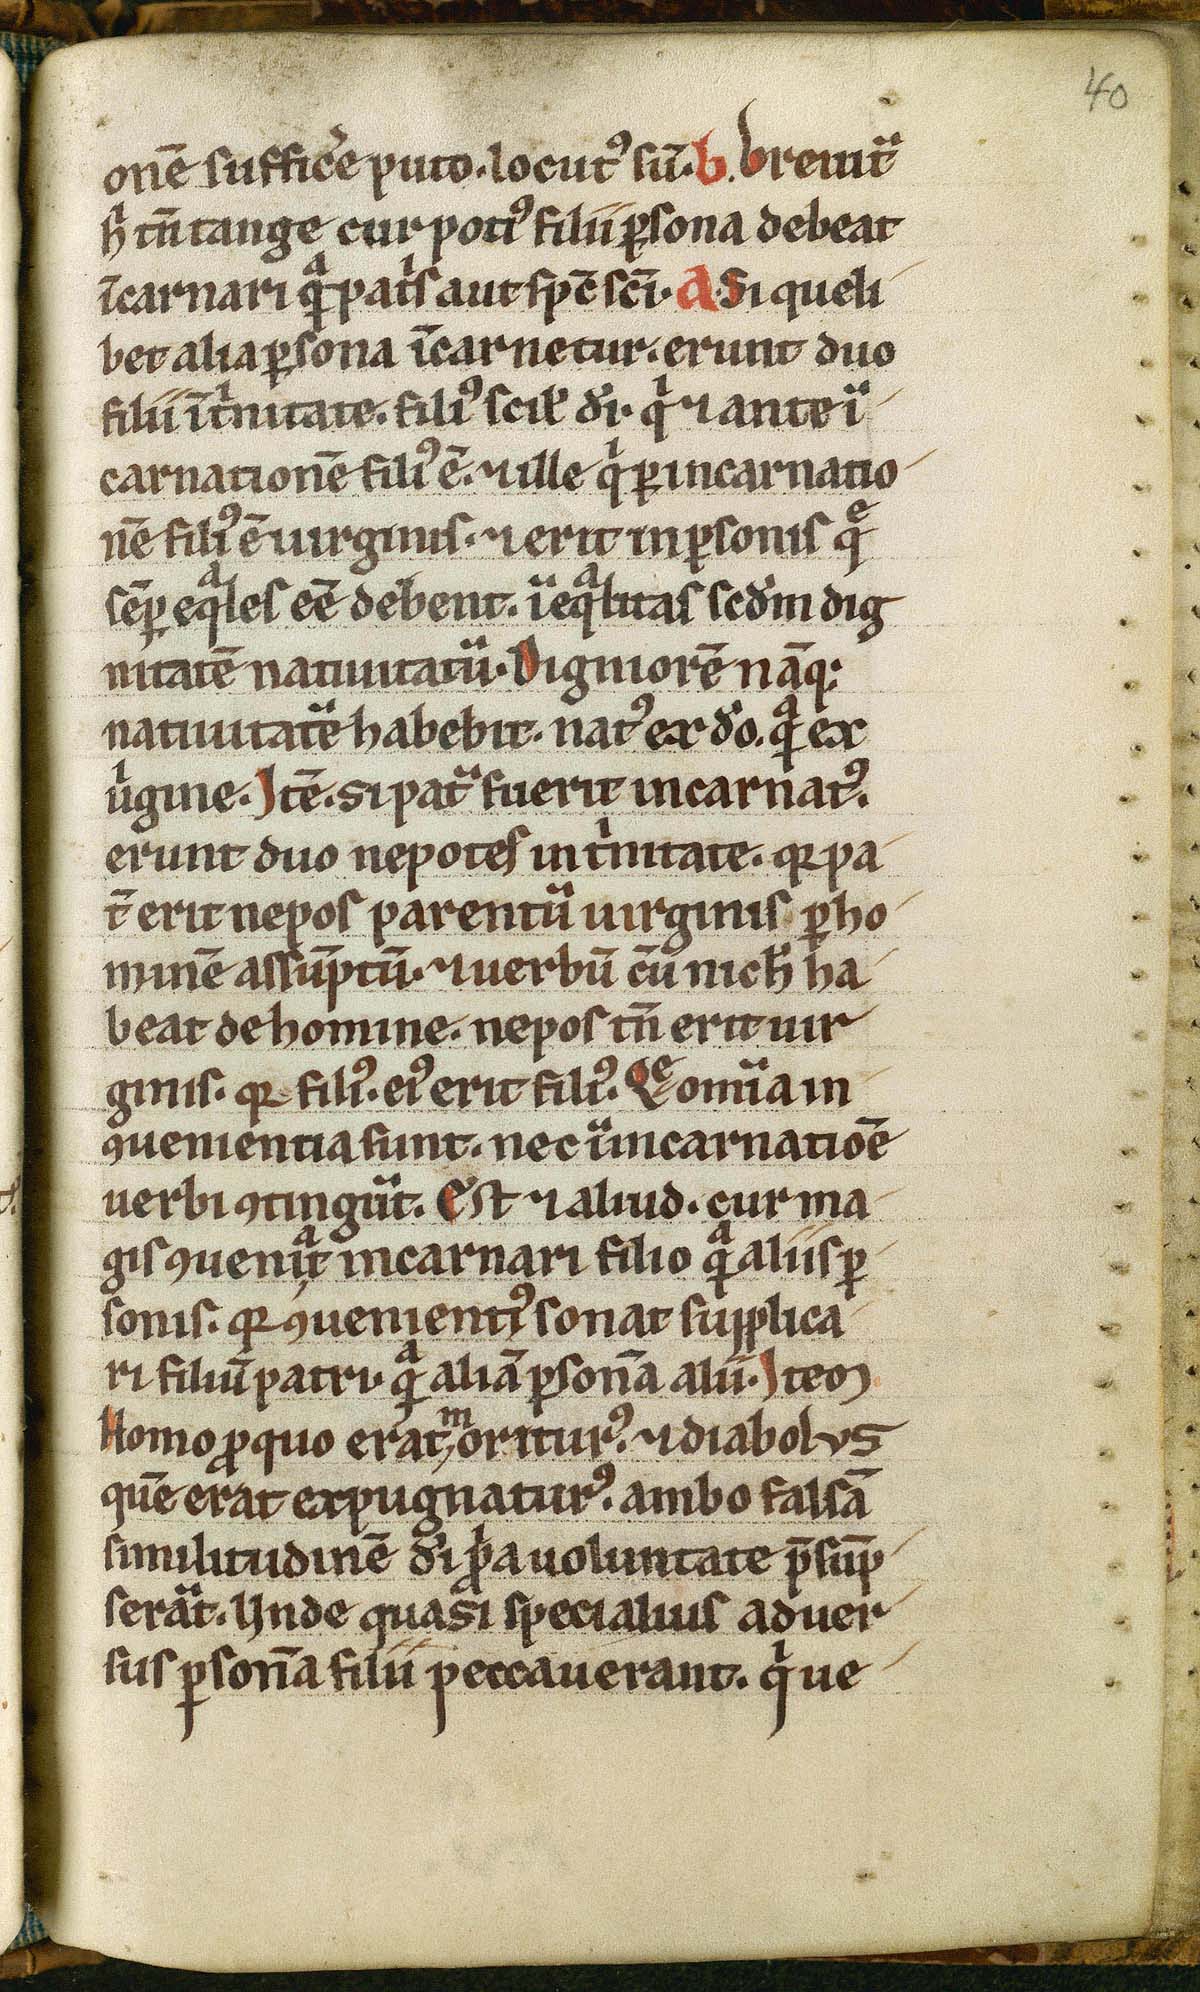 40
onē suffic̄e puto. locutꝰ sū. b. breuit᷑
h̄ tn̄ tange cur potiꝰ filii ꝑsona debeat
īcarnari qͣ patͥs aut sp̄c sc̄i. A. Si queli
bet alia ꝑsona īcarnetur. erunt duo
filii ī tͥnitate. filiꝰ scil̓ dī. qͥ ⁊ ante ī
carnationē filiꝰ ē. ⁊ ille qͥ ꝑ incarnatio
nē filiꝰ ē uirginis. ⁊ erit in ꝑsonis qͤ
sēꝑ eqͣles eē debent. īeqͣlitas scd̓m dig
nitatē natiuitatū. Digniorē nāq;
natiuitatē habebit. natꝰ ex dō. qͣ ex
uͥgine. Itē. si pat᷑ fuerit incarnatꝰ.
erunt duo nepotes in tͥnitate. qꝛ pa
t̄ erit nepos parentū uirginis ꝑ ho
minē assūptū. ⁊ uerbū cū nich̓ ha
beat de homine. nepos tn̄ erit uir
ginis. qꝛ filiꝰ. eiꝰ erit filiꝰ. Qͤ om̄ia in
ꝯuenientia sunt. nec ī incarnatiōe
uerbi ꝯtingūt. Est ⁊ aliud. cur ma
gis ꝯueniͣt incarnari filio qͣ aliis ꝑ
sonis. qꝛ ꝯuenientiꝰ sonat supplica
ri filiū patri. qͣ aliā ꝑsonā alii. Item
Homo ꝓ quo erat moriturꝰ. ⁊ diabolus
quē erat expugnaturꝰ. ambo falsā
similitudinē dī ꝓpͥa uoluntate p̄sūp
serāt. Unde quasi specialius aduer
sus ꝑsonā filii peccauerant. qͥ ue